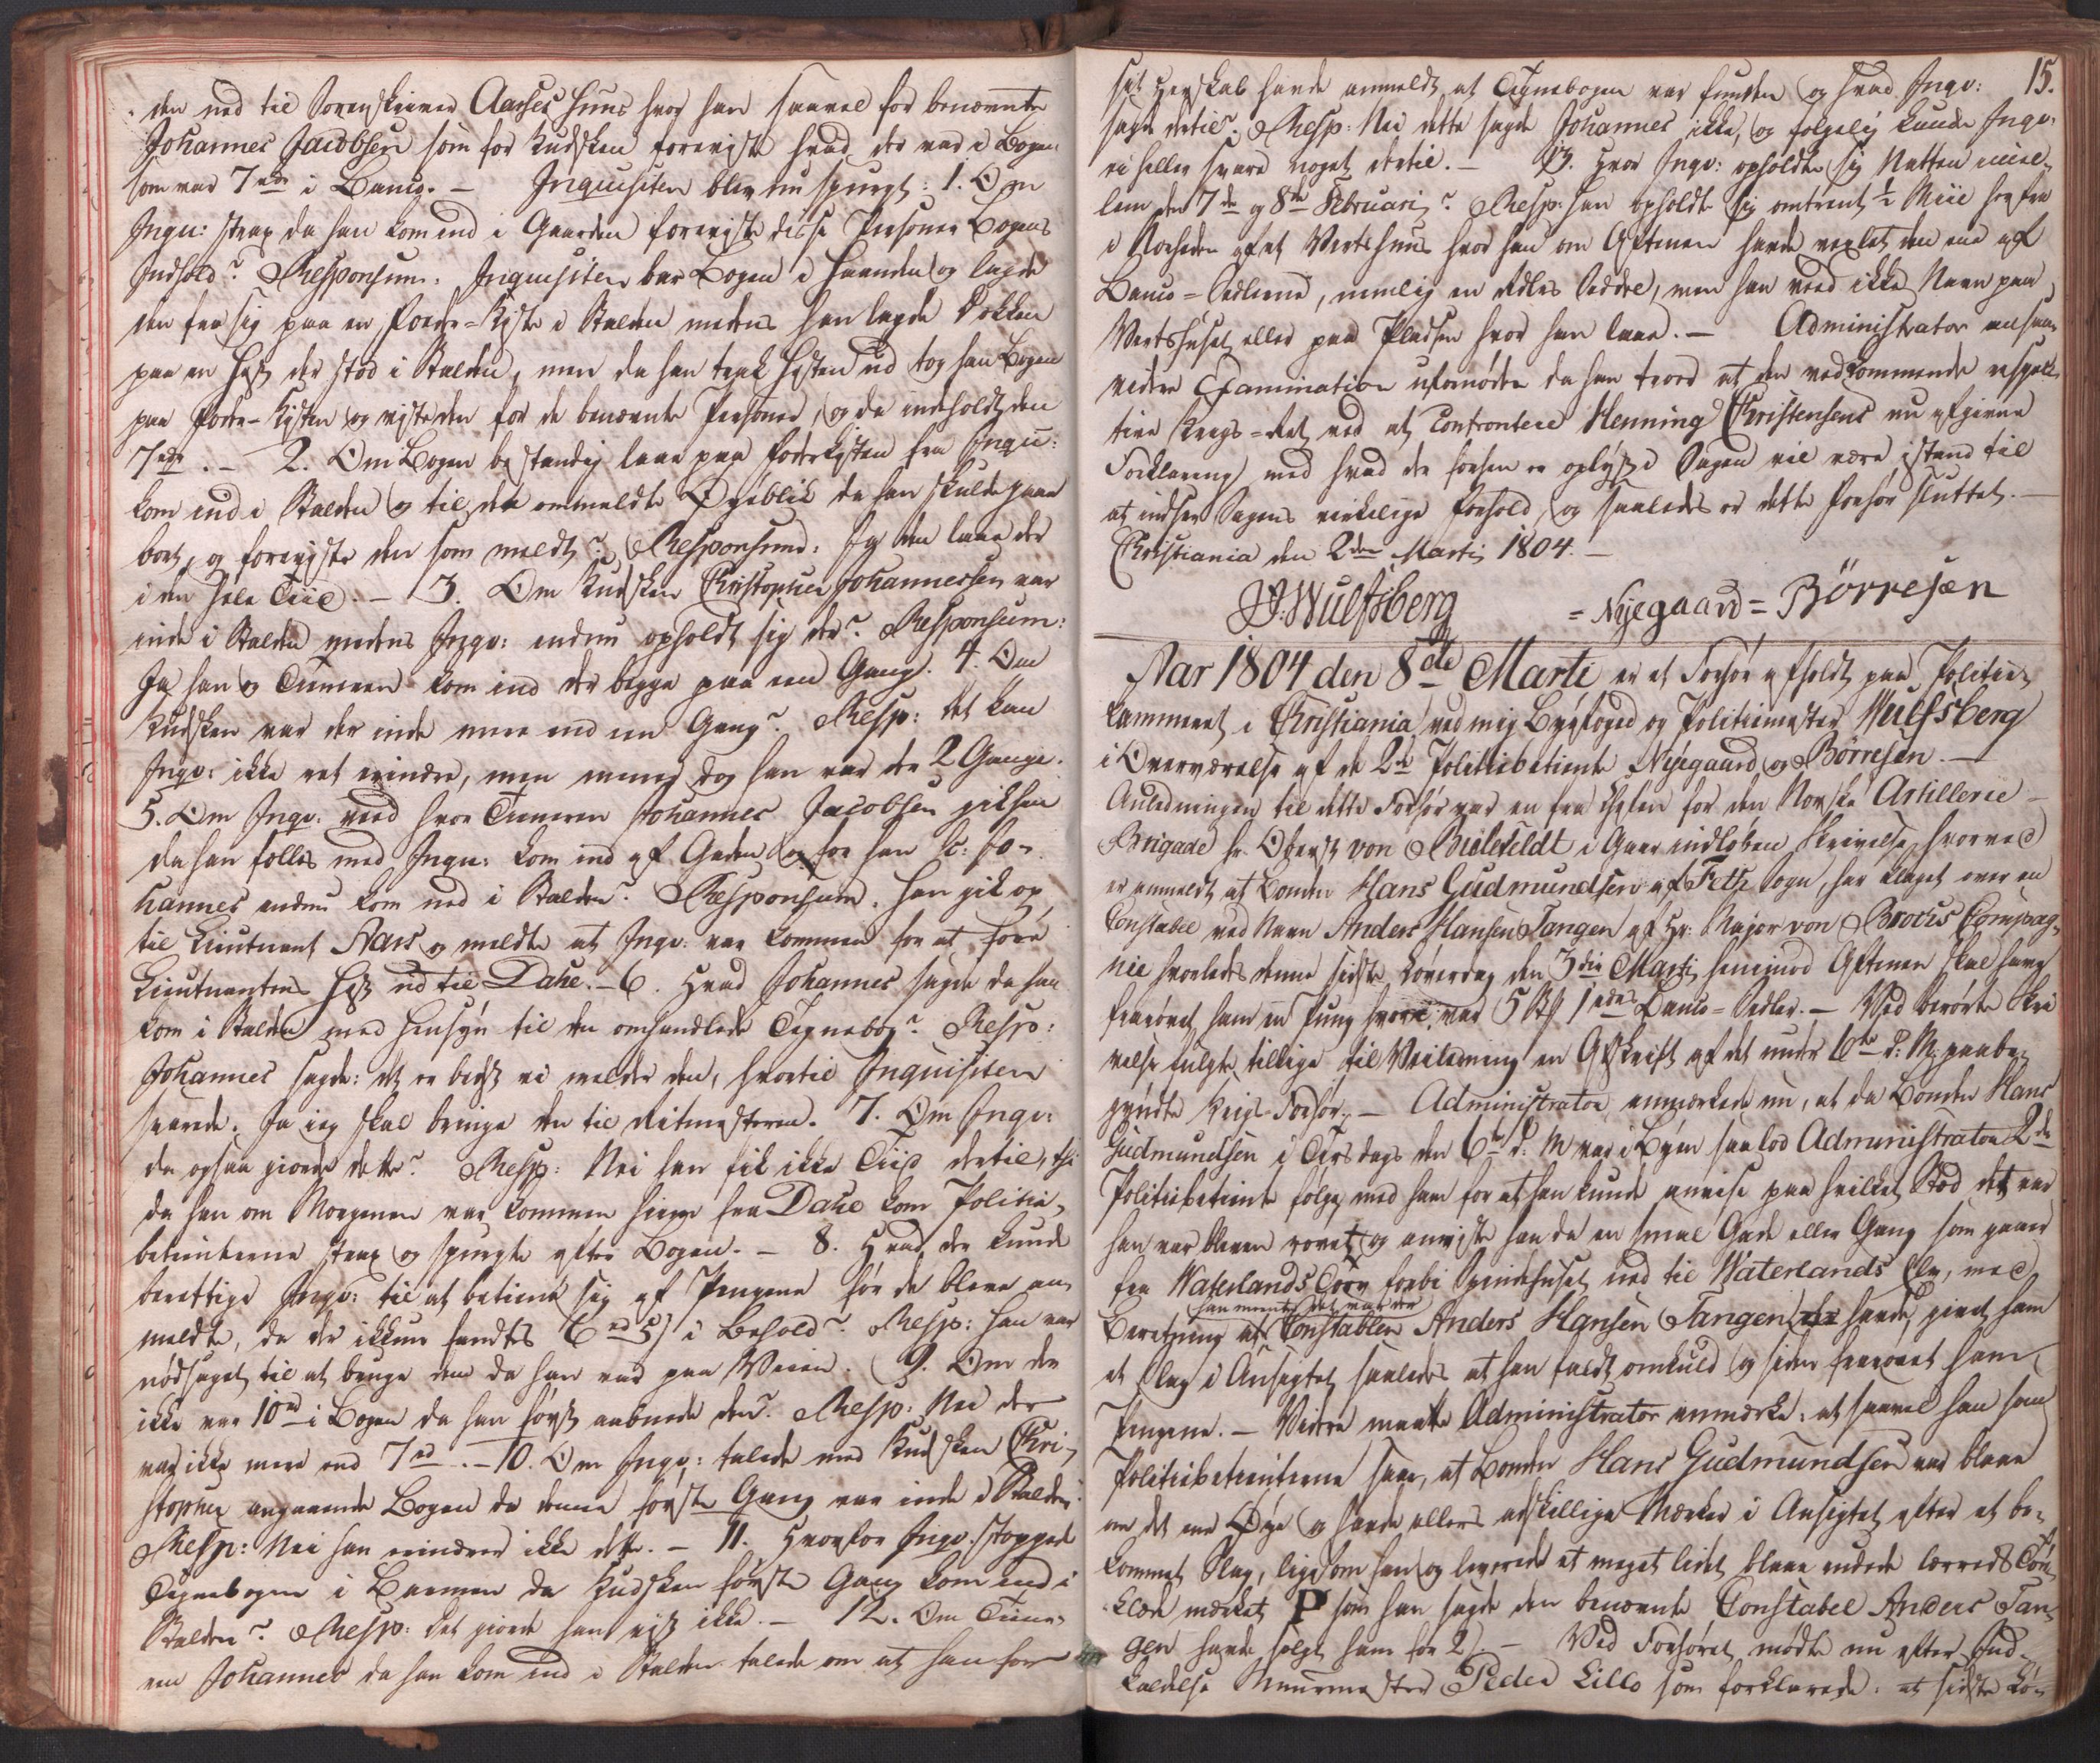 den ned til Sorenskriver Aarses Huus hvor han saavel for benævnte
Johannes Jacobsen som for Kudsken foreviste hvad der var i Bogen
som var 7 rdr i Banco. – Inquisiten blev nu spurgt: 1. Om
Inqu: strax da han kom ind i Gaarden foreviste disse Personer Bogens
Indhold? Responsum: Inquisiten bar Bogen i Haanden og lagde
den fra sig paa en Foder-Kiste i Stalden medens han lagde Dækken
paa en Hest der stod i Stalden, men da han trak Hesten ud tog han Bogen
paa Foder-Kisten og viste den for de benævnte Personer, og da indeholdt den
7 rdr. – 2. Om Bogen bestandig laae paa Foderkisten fra Inqu:
kom ind i Stalden og til det ommeldte Øyeblik da han skulde gaae
bort, og foreviste den som meldt? Responsum: Ja den laae der
i den hele Tiid. – 3. Om Kudsken Christopher Johannessen var
inde i Stalden medens Inqv: endnu opholdt sig der? Responsum:
Ja han og Tieneren kom ind der begge paa een Gang. 4. Om
Kudsken var der inde mere end een Gang? Resp: det kan
Inqv: ikke ret erindre, men meener dog han var der 2 Gange.
5. Om Inqv: veed hvor Tieneren Johannes Jacobsen gik hen
da han følles med Inqu: kom ind af Gaden og før han Jo-
hannes endnu kom ned i Stalden? Responsum: han gik op
til Lieutnant Aars og meldte at Inqv: var kommen for at føre
Lieutnantens Hest ud til Dahe. – 6. Hvad Johannes sagde da han
kom i Stalden med Hensyn til den omhandlede Tegnebog? Resp:
Johannes sagde: det er bedst vi melder den, hvortil Inquisiten
svarede: Ja jeg skal bringe den til Ritmesteren. 7. Om Inqv:
da ogsaa giorde dette? Resp: Nei han fik ikke Tiid dertil, thi
da han om Morgenen var kommen hiem fra Dahe kom Politie-
betienterne strax og spurgte efter Bogen. – 8. Hvad der kunde
berettige Inqv: til at betiene sig af Pengene før de bleve an-
meldte, da der ikkun fandtes 6 rd 5 i Behold? Resp: han var
nødsaget til at bruge dem da han var paa Veien. 9. Om der
ikke var 10 rd i Bogen da han først aabnede den? Resp: Nei der
var ikke mere end 7 rd. – 10. Om Inqv: talede med Kudsken Chri-
stopher angaaende Bogen da denne første Gang var inde i Stalden?
Resp: Nei han erindrer ikke dette. – 11. Hvorfor Inqv: stoppede
Tegnebogen i Barmen da Kudsken første Gang kom ind i
Stalden? Resp: det giorde han vist ikke. – 12. Om Tiene-
ren Johannes da han kom ind i Stalden talede om at han for
15.
sit Herskab havde anmeldt at Tegnebogen var funden og hvad Inqv:
sagde dertil? Resp: Nei dette sagde Johannes ikke, og følgelig kunde Inqv:
ei heller svare noget dertil. – 13. Hvor Inqv: opholdte sig Natten imel-
lem den 7de og 8de Februarii? Resp: han opholdt sig omtrent ½ Miil herfra
i Nærheden af et Vertshuus hvor han om Aftenen havde vexlet den ene af
Banco-Sedlerne, nemlig en Rdlrs Seddel, men han veed ikke Navn paa
Vertshuset eller paa Pladsen hvor han laae. – Administrator ansaae
videre Examination ufornøden da han troer at den vedkommende respec-
tive Krigs-Ret ved at confrontere Henning Christensens nu afgivne
Forklaring med hvad der forhen er oplyst i Sagen vil være istand til
at indsee Sagens virkelige Forhold, og saaledes er dette Forhør sluttet. –
Christiania den 2den Martii 1804. –
J. Wulfsberg = Nyegaard = Börresen
Aar 1804 den 8de Marti er et Forhør afholdt paa Politie-
Kammeret i Christiania ved mig Byefoged og Politiemester Wulfsberg
i Overværelse af de 2de Politiebetiente Nyegaard og Børresen. –
Anledningen til dette Forhør var en fra Chefen for den Norske Artillerie-
Brigade Hr. Oberst von Bielefeldt i Gaar indløben Skrivelse hvorved
er anmeldt at Bonden Hans Gudmundsen af Feth Sogn, har klaget over en
Constabel ved Navn Anders Hansen Tangen af Hr: Major von Brocks Compag-
nie hvorledes denne sidste Løverdag den 3die Martii henimod Aftenen skal have
frarøvet ham en Pung hvori var 5 Stk 1 rdrs Banco-Sedler. – Ved berørte Skri-
velse fulgte tillige til Veiledning en Afskrift af det under 6te d: M. paabe-
gyndte Krigs-Forhør. – Administrator anmærkede nu, at da Bonden Hans
Gudmundsen i Tirsdags den 6te d: M var i Byen saa lod Administrator 2de
Politiebetiente følge med ham for at han kunde anvise paa hvilket Sted det var
han var bleven røvet og anviste han da en smal Gade eller Gang som gaaer
fra Waterlands Torv forbi Spindehuset ned til Waterlands Elv, med
han meente det var den
Beretning at Constablen Anders Hansen Tangen havde givet ham
et Slag i Ansigtet saaledes at han faldt omkuld og siden frarøvet ham
Pengene. – Videre maatte Administrator anmærke: at saavel han som
Politiebetienterne saae, at Bonden Hans Gudmundsen var blaae
om det ene Øye og havde ellers adskillige Mærker i Ansigtet efter at be-
kommet Slag, ligesom han og leverede et meget lidet blaae rudede lærreds Tør-
klæde mærket P som han sagde den benævnte Constabel Anders Tan-
gen havde solgt ham for 2. – Ved Forhøret mødte nu efter Ind-
kaldelse Muurmester Peder Lillo som forklarede: at sidste Lø-